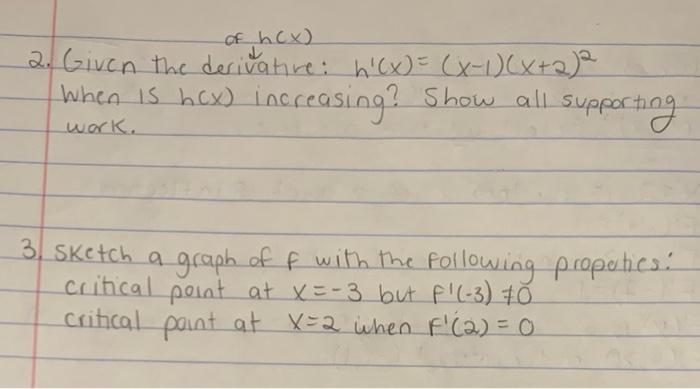 of h(x)
2. Given the derivative: h'(x) = (x-1)(x+2)²
When is h(x) increasing? Show all supporting
work.
3. Sketch a graph of f with the following propeties:
critical point at x=-3 but f'(-3) ≠0
critical point at x=2 when f'(2) = 0